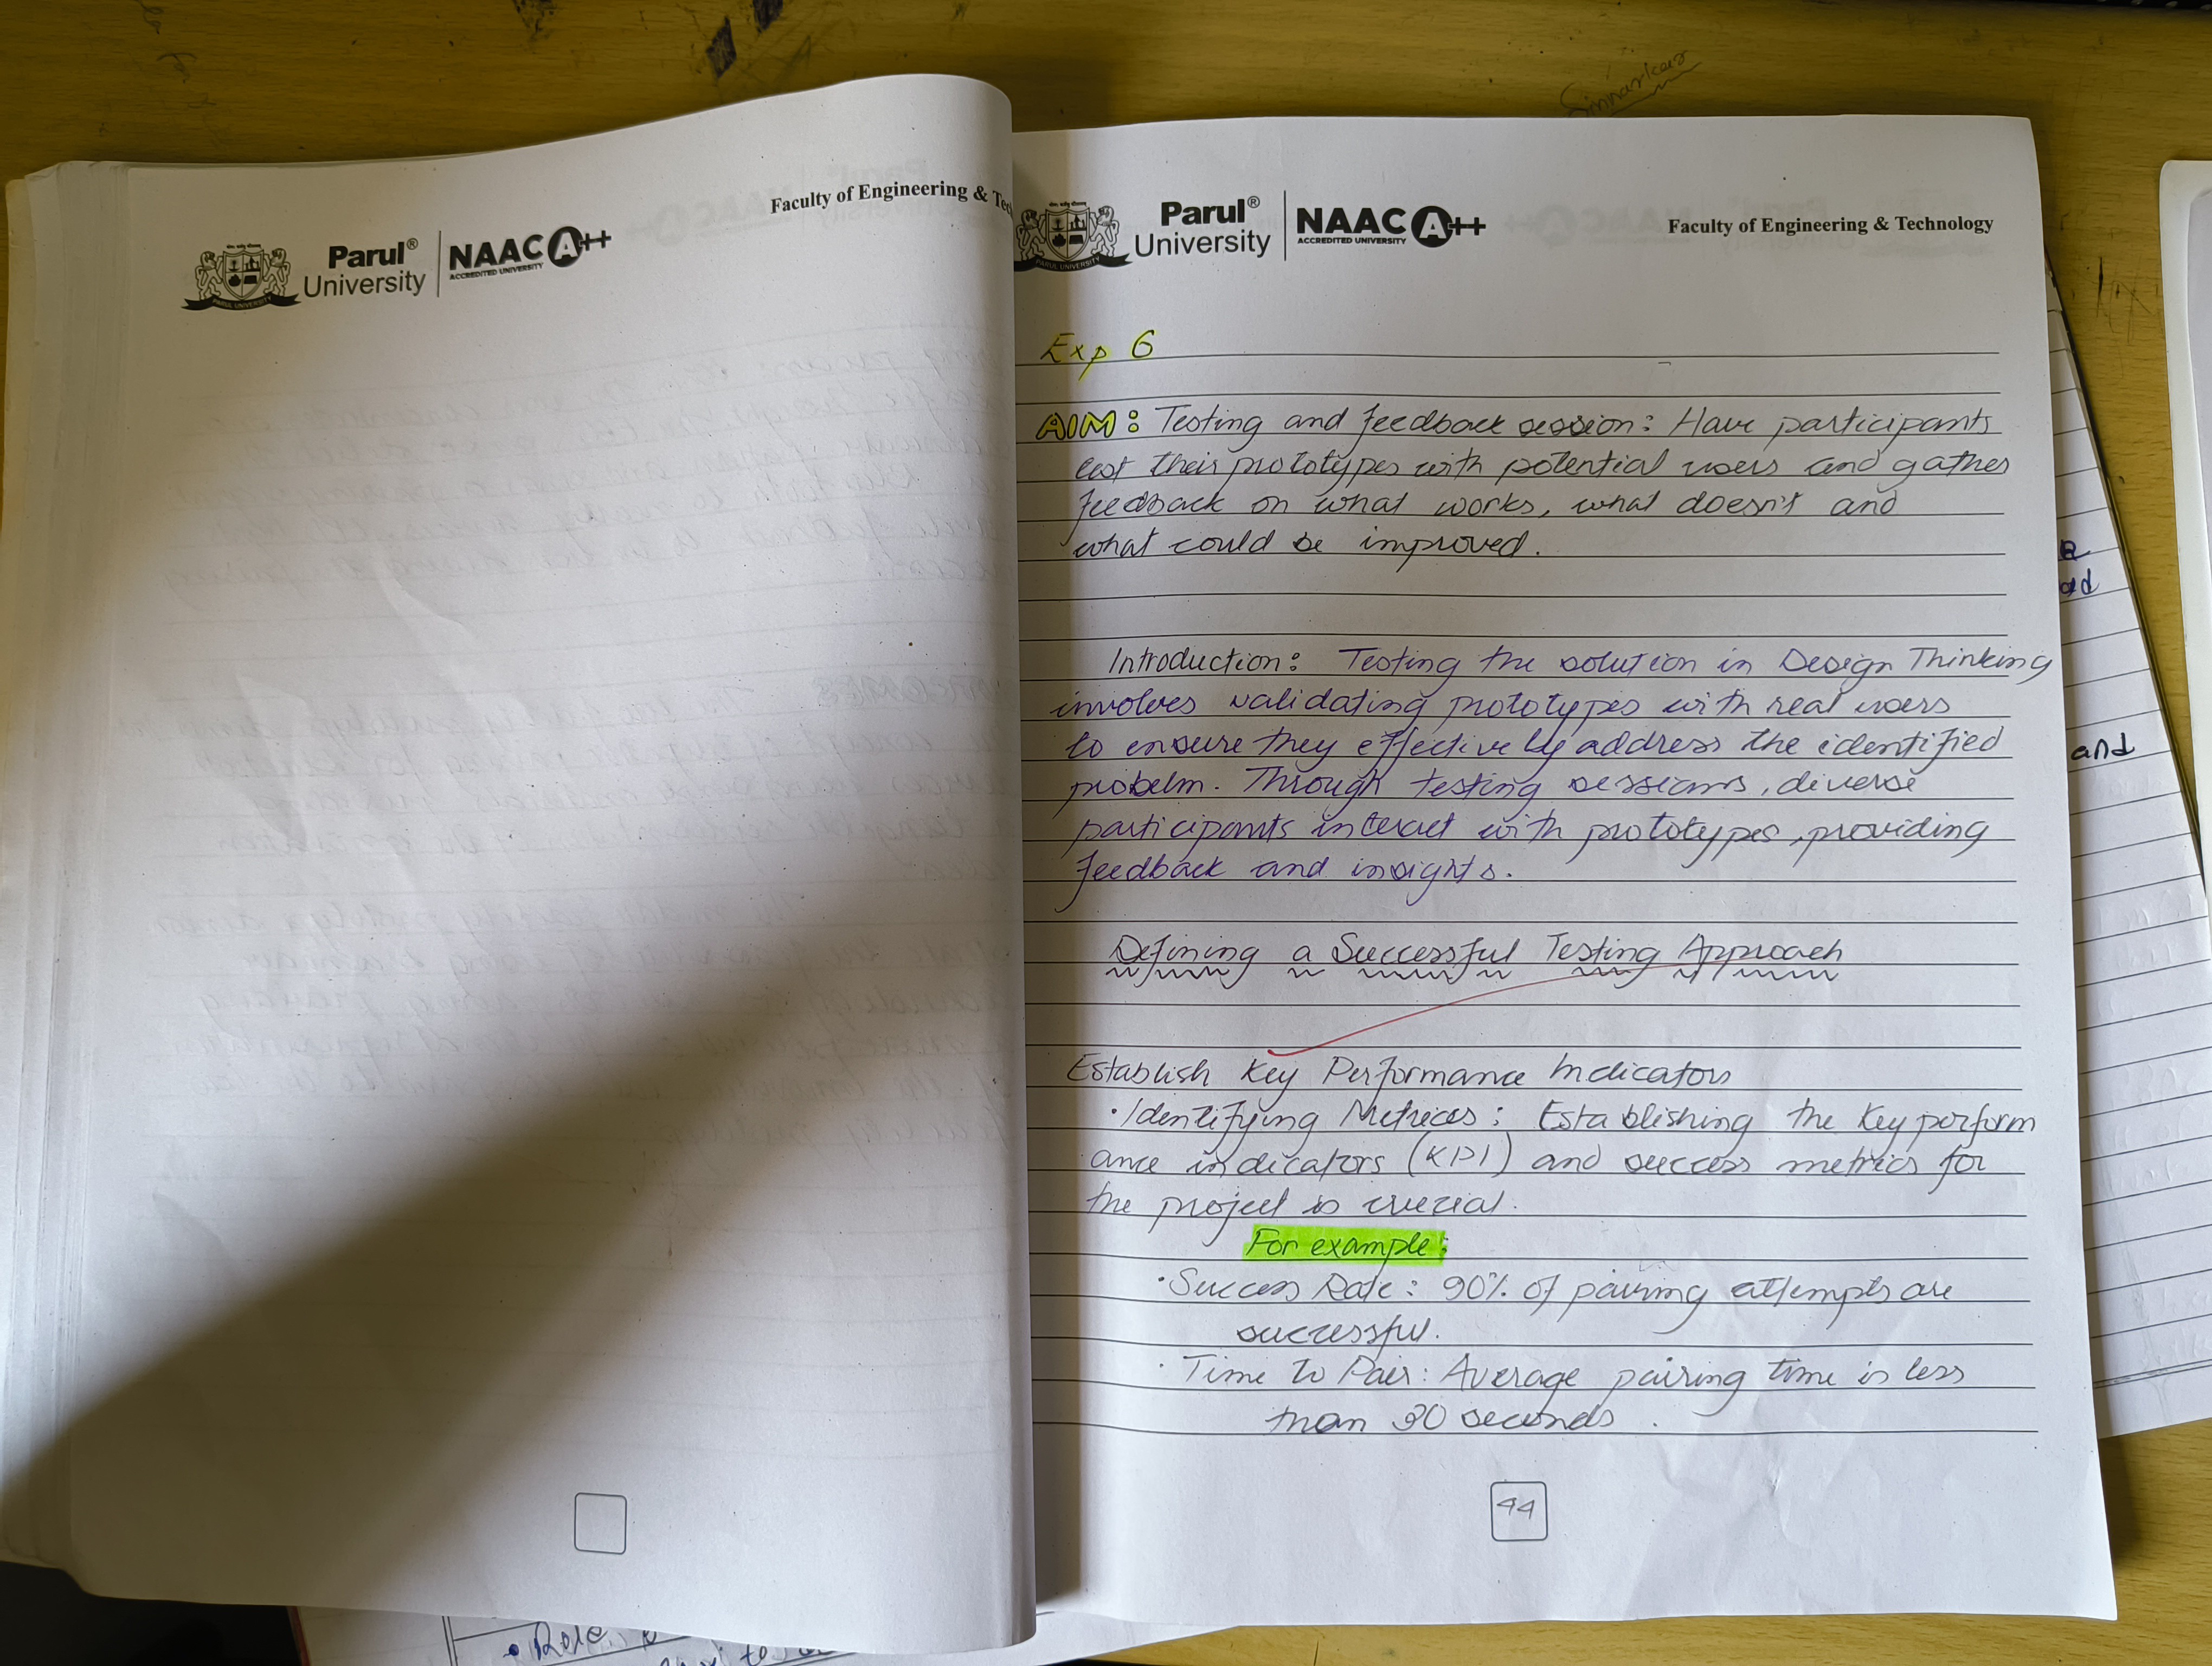 Sinnarkar
Faculty of Engineering & Tec
Parul® University
NAAC A++
ACCREDITED UNIVERSITY
PARUL UNIVERSITY
Parul® University
NAAC A++
ACCREDITED UNIVERSITY
PARUL UNIVERSITY
Faculty of Engineering & Technology
Exp 6
AIM: Testing and feedback session: Have participants
test their prototypes with potential users and gather
feedback on what works, what doesn't and
what could be improved.
Introduction: Testing the solution in Design Thinking
involves validating prototypes with real users
to ensure they effectively address the identified
probelm. Through testing sessions, diverse
participants interact with prototypes, providing
feedback and insights.
Defining a Successful Testing Approach
Establish Key Performance Indicators
• Identifying Metrices: Establishing the Key perform
ance indicators (KPI) and success metrics for
the project is crucial.
For example:
• Success Rate: 90% of pairing attempts are
successful.
• Time to Pair: Average pairing time is less
than 30 seconds.
44
ad
and
• Role